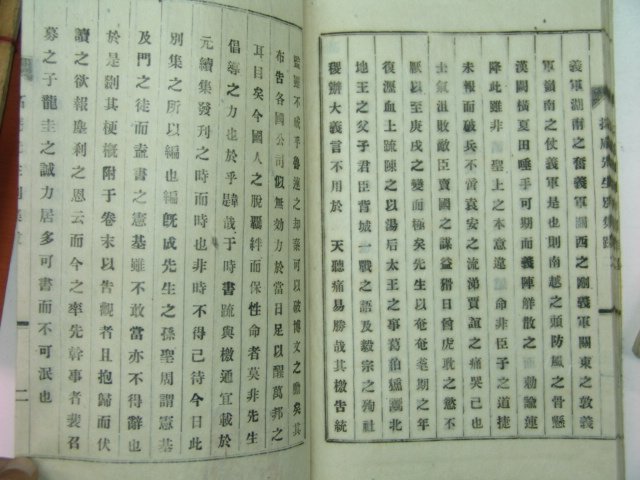 義軍湖南之奮義軍關西之剛義軍關東之敦義
軍嶺南之仗義軍是也則南越之頭防風之骨懸
漢闕橫夏田唾手可期而義陣解散之 勅諭連
降此雖非 聖上之本意違 命非臣子之道捷
未報而破兵不啻袁安之流涕賈誼之痛哭己也
士氣沮敗敵臣賣國之謀益猾日曾虎耽之慾不
厭以至庚戌之變而極矣先生以奄奄耄期之年
復瀝血上䟽陳之以湯后太王之事葛伯獯鬻北
地王之父子君臣背城一戰之語及毅宗之殉社
稷辦大義言不用於 天聽痛易勝哉其檄告統
監雖不成乎魯連之却秦可以破博文之膽矣其
布告各國公司假無効力於當日足以醒萬邦之
耳目矣今國人之脫羈絆而保性命者莫非先生
倡導之力也於乎韙哉于時書䟽與檄通宜載於
元續集發刊之時而時也非時不得已待今日此
別集之所以編也編旣成先生之孫聖周謂憲基
及門之徒而盍書之憲基雖不敢當亦不得辭也
於是劉其梗槪附于卷末以告觀者且抱歸而伏
讀之欲報塵刹之恩云而今之率先幹事者裴召
募之子龍圭之誠力居多可書而不可泯也
二